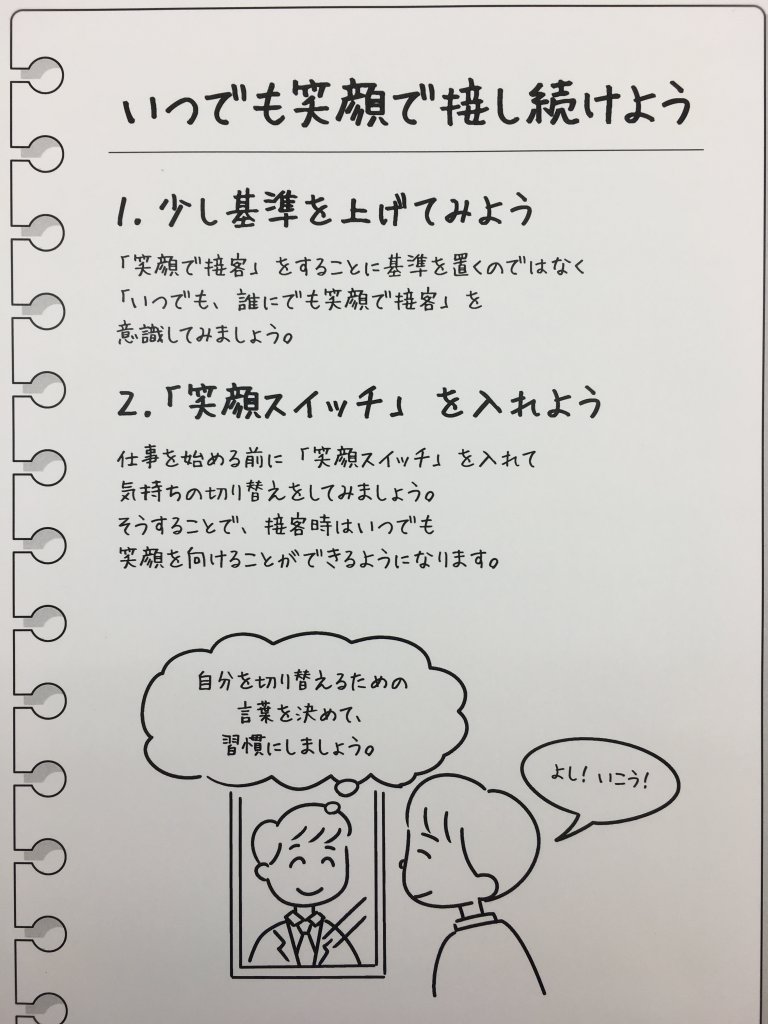 いつでも笑顔で接し続けよう
1. 少し基準を上げてみよう
「笑顔で接客」をすることに基準を置くのではなく
「いつでも、誰にでも笑顔で接客」を
意識してみましょう。
2.「笑顔スイッチ」を入れよう
仕事を始める前に「笑顔スイッチ」を入れて
気持ちの切り替えをしてみましょう。
そうすることで、接客時はいつでも
笑顔を向けることができるようになります。
自分を切り替えるための
言葉を決めて、
習慣にしましょう。
よし!いこう!